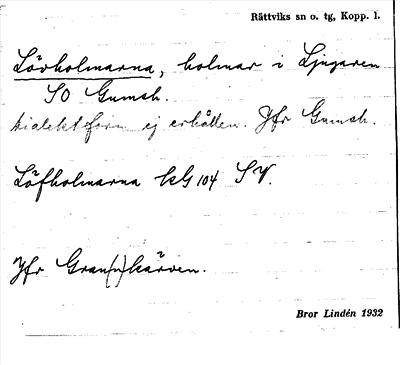 Rättviks sn o. tg, Kopp. l.
Lövholmarna, holmar i Ljugaren
SO Gumsh.
Dialektform ej erhållen. Jfr Gumsh.
Löfholmarna kG 104 SV.
Jfr Gran(n)kärven.
Bror Lindén 1932